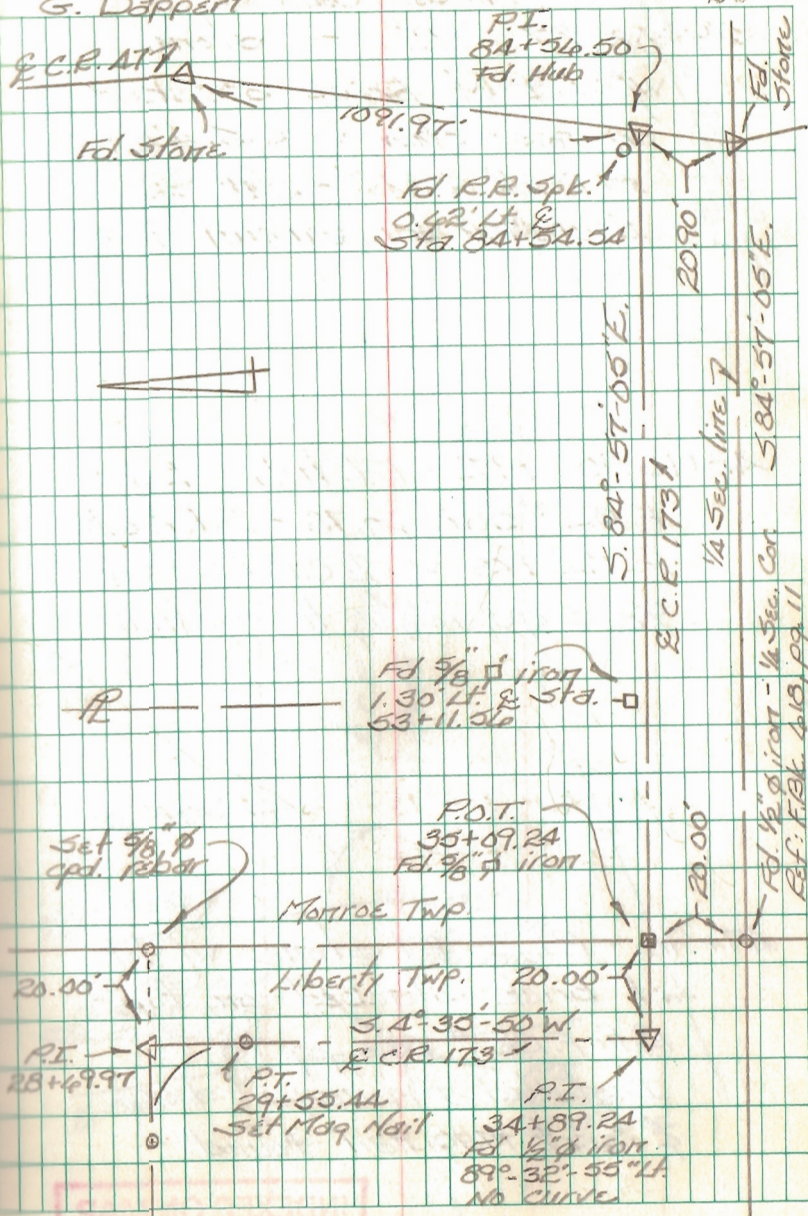 G. Dappert
℄ C.R. 47
Fd. Stone
1091.97'
P.I.
84+56.50
Fd. Hub
Fd. Stone
Fd. R.R. Spk.
0.62' Lt. ℄
Sta. 84+54.54
20.90'
S. 84°-57'-05" E.
℄ C.R. 173
1/4 Sec. line
S. 84°-57'-05" E.
Fd 5/8" ⌷ iron
1.30' Lt. ℄ Sta.
53+11.56
℄
Set 5/8" ø
cpd. rebar
P.O.T.
35+09.24
Fd. 5/8" ⌷ iron
20.00'
Fd. 1/2" ø iron - 1/4 Sec. Cor.
Ref: F.Bk. 618, pg. 11
Monroe Twp.
Liberty Twp.
20.00'
20.00'
S. 4°-35'-50" W.
℄ C.R. 173
P.I.
28+69.97
P.T.
29+55.44
Set Mag Nail
P.I.
34+89.24
Fd 1/2" ø iron
89°-32'-55" Lt.
No Curve